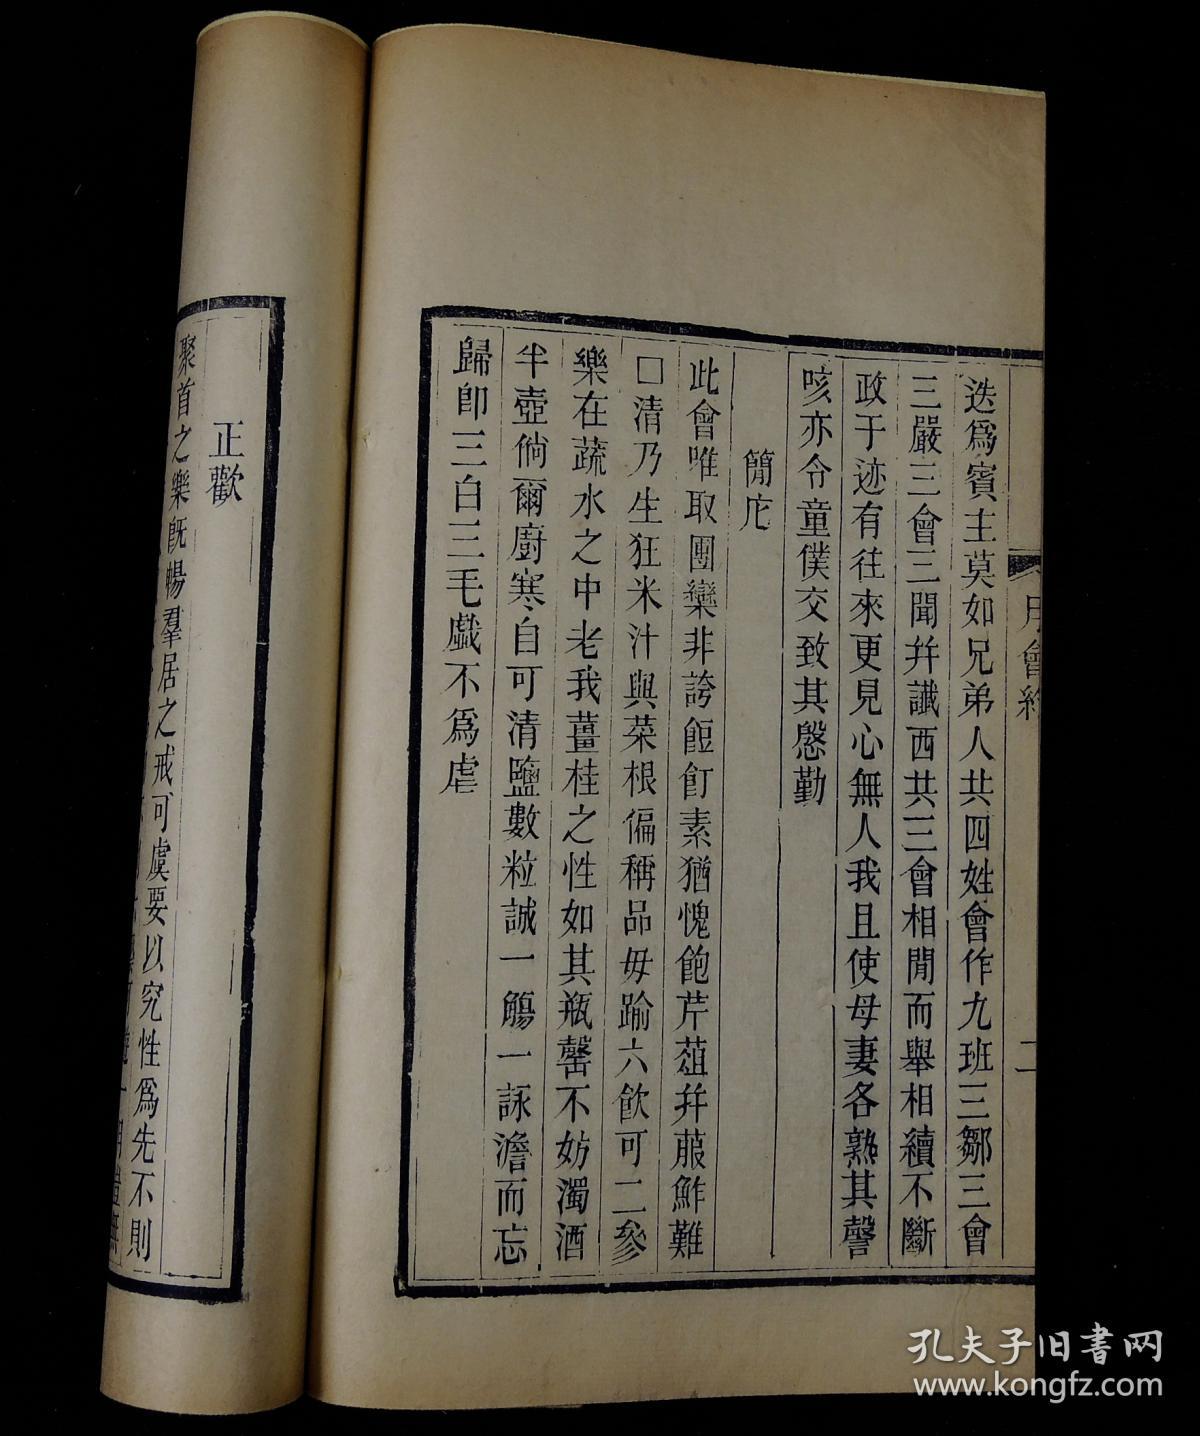 月會約
二
迭為賓主莫如兄弟人共四姓會作九班三鄒三會
三嚴三會三聞幷讖西共三會相閒而舉相續不斷
政于迹有往來更見心無人我且使母妻各熟其謦
咳亦令童僕交致其慇勤
簡庀
此會唯取團欒非誇餖飣素猶愧飽芹葅幷菔鮓難
□清乃生狂米汁與菜根偏稱品毋踰六飲可二參
樂在蔬水之中老我薑桂之性如其瓶罄不妨濁酒
半壺倘爾廚寒自可清鹽數粒誠一觴一詠澹而忘
歸即三白三毛戲不為虐
正歡
聚首之樂既暢羣居之戒可虞要以究性為先不則
孔夫子旧书网
www.kongfz.com